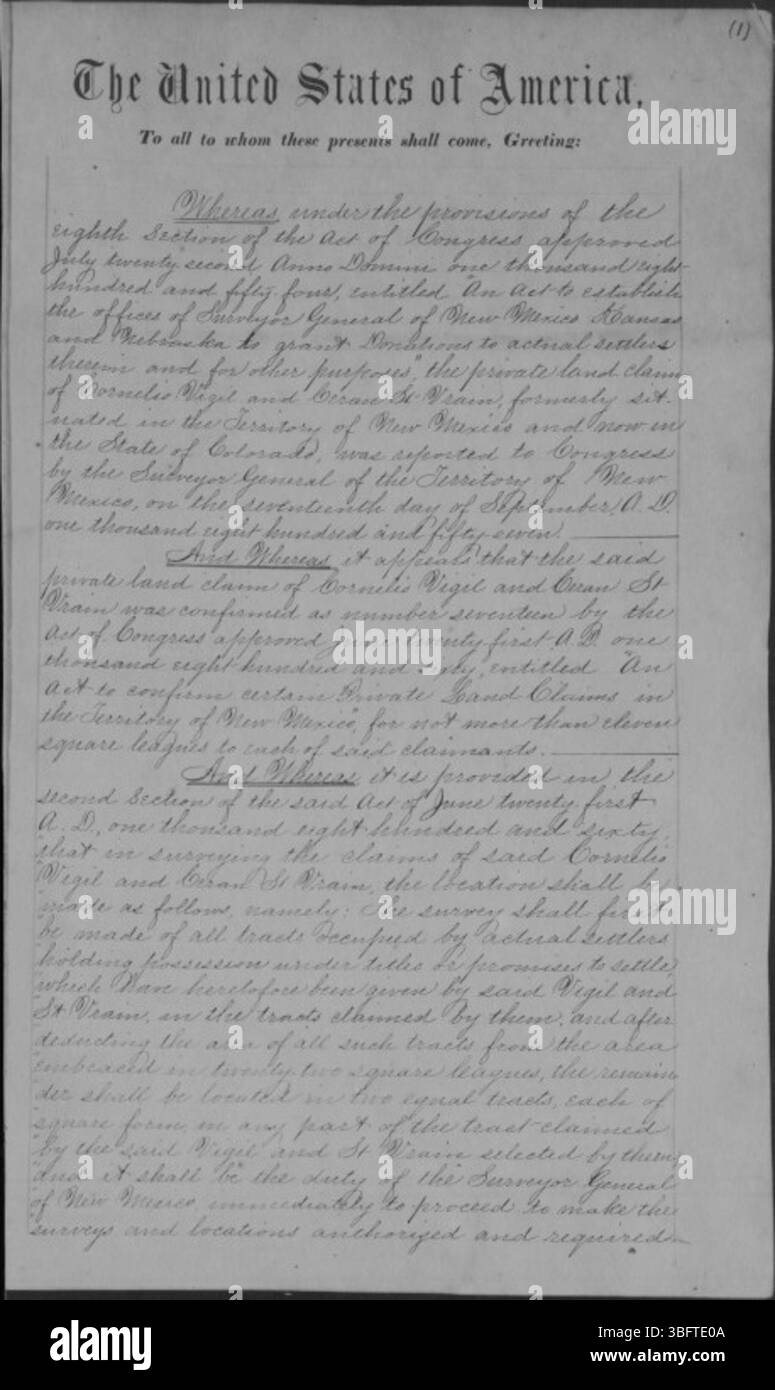 (1)
The United States of America,
To all to whom these presents shall come, Greeting:
Whereas under the provisions of the
eighth Section of the Act of Congress approved
July twenty second Anno Domini one thousand eight
hundred and fifty four, entitled "An Act to establish
the offices of Surveyor General of New Mexico Kansas
and Nebraska to grant Donations to actual settlers
therein and for other purposes," the private land claim
of Cornelio Vigil and Ceran St Vrain, formerly sit-
uated in the Territory of New Mexico and now in
the State of Colorado, was reported to Congress
by the Surveyor General of the Territory of New
Mexico, on the seventeenth day of September A.D.
one thousand eight hundred and fifty seven.
And Whereas it appears that the said
private land claim of Cornelio Vigil and Ceran St
Vrain was confirmed as number seventeen by the
Act of Congress approved June twenty first A.D. one
thousand eight hundred and sixty, entitled "An
Act to confirm certain Private Land Claims in
the Territory of New Mexico", for not more than eleven
square leagues to each of said claimants.
And Whereas it is provided in the
second Section of the said Act of June twenty first
A.D., one thousand eight hundred and sixty,
"that in surveying the claims of said Cornelio
"Vigil and Ceran St Vrain, the location shall be
"made as follows, namely: The survey shall first
"be made of all tracts occupied by actual settlers
"holding possession under titles or promises to settle,
"which have heretofore been given by said Vigil and
"St Vrain, in the tracts claimed by them; and after
"deducting the area of all such tracts from the area
"embraced in twenty two square leagues, the remain-
"der shall be located in two equal tracts, each of
"square form, in any part of the tract claimed
"by the said Vigil and St Vrain selected by them;
"and it shall be the duty of the Surveyor General
"of New Mexico, immediately to proceed to make the
"surveys and locations authorized and required
alamy
Image ID: 3BFTE0A
www.alamy.com